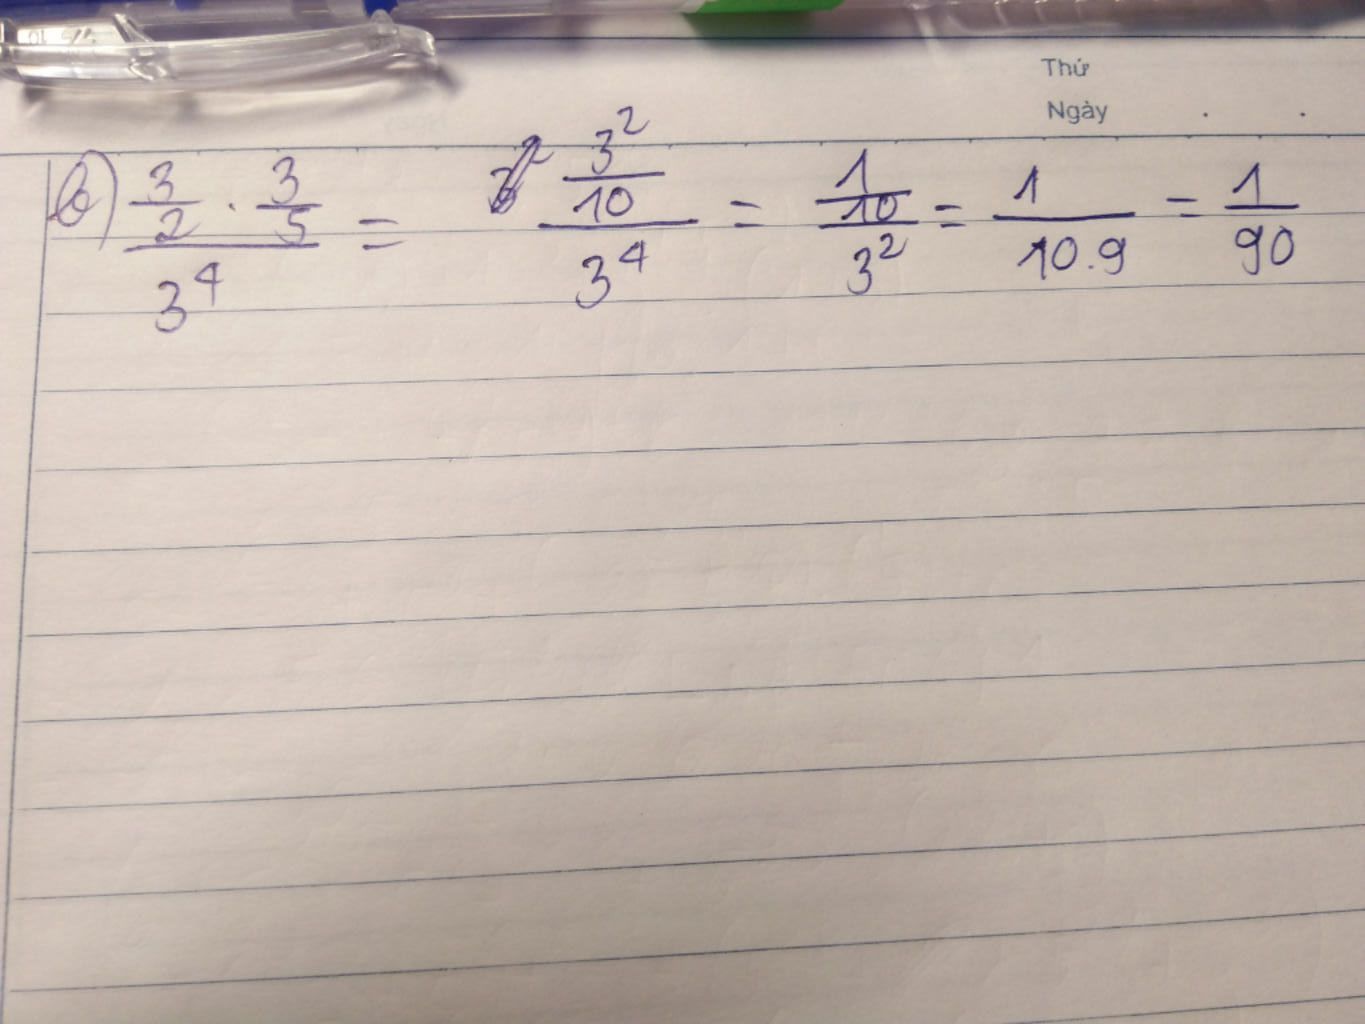 Thứ
Ngày . .
b) \frac{\frac{3}{2} \cdot \frac{3}{5}}{3^4} = \frac{\frac{3^2}{10}}{3^4} = \frac{\frac{1}{10}}{3^2} = \frac{1}{10.9} = \frac{1}{90}